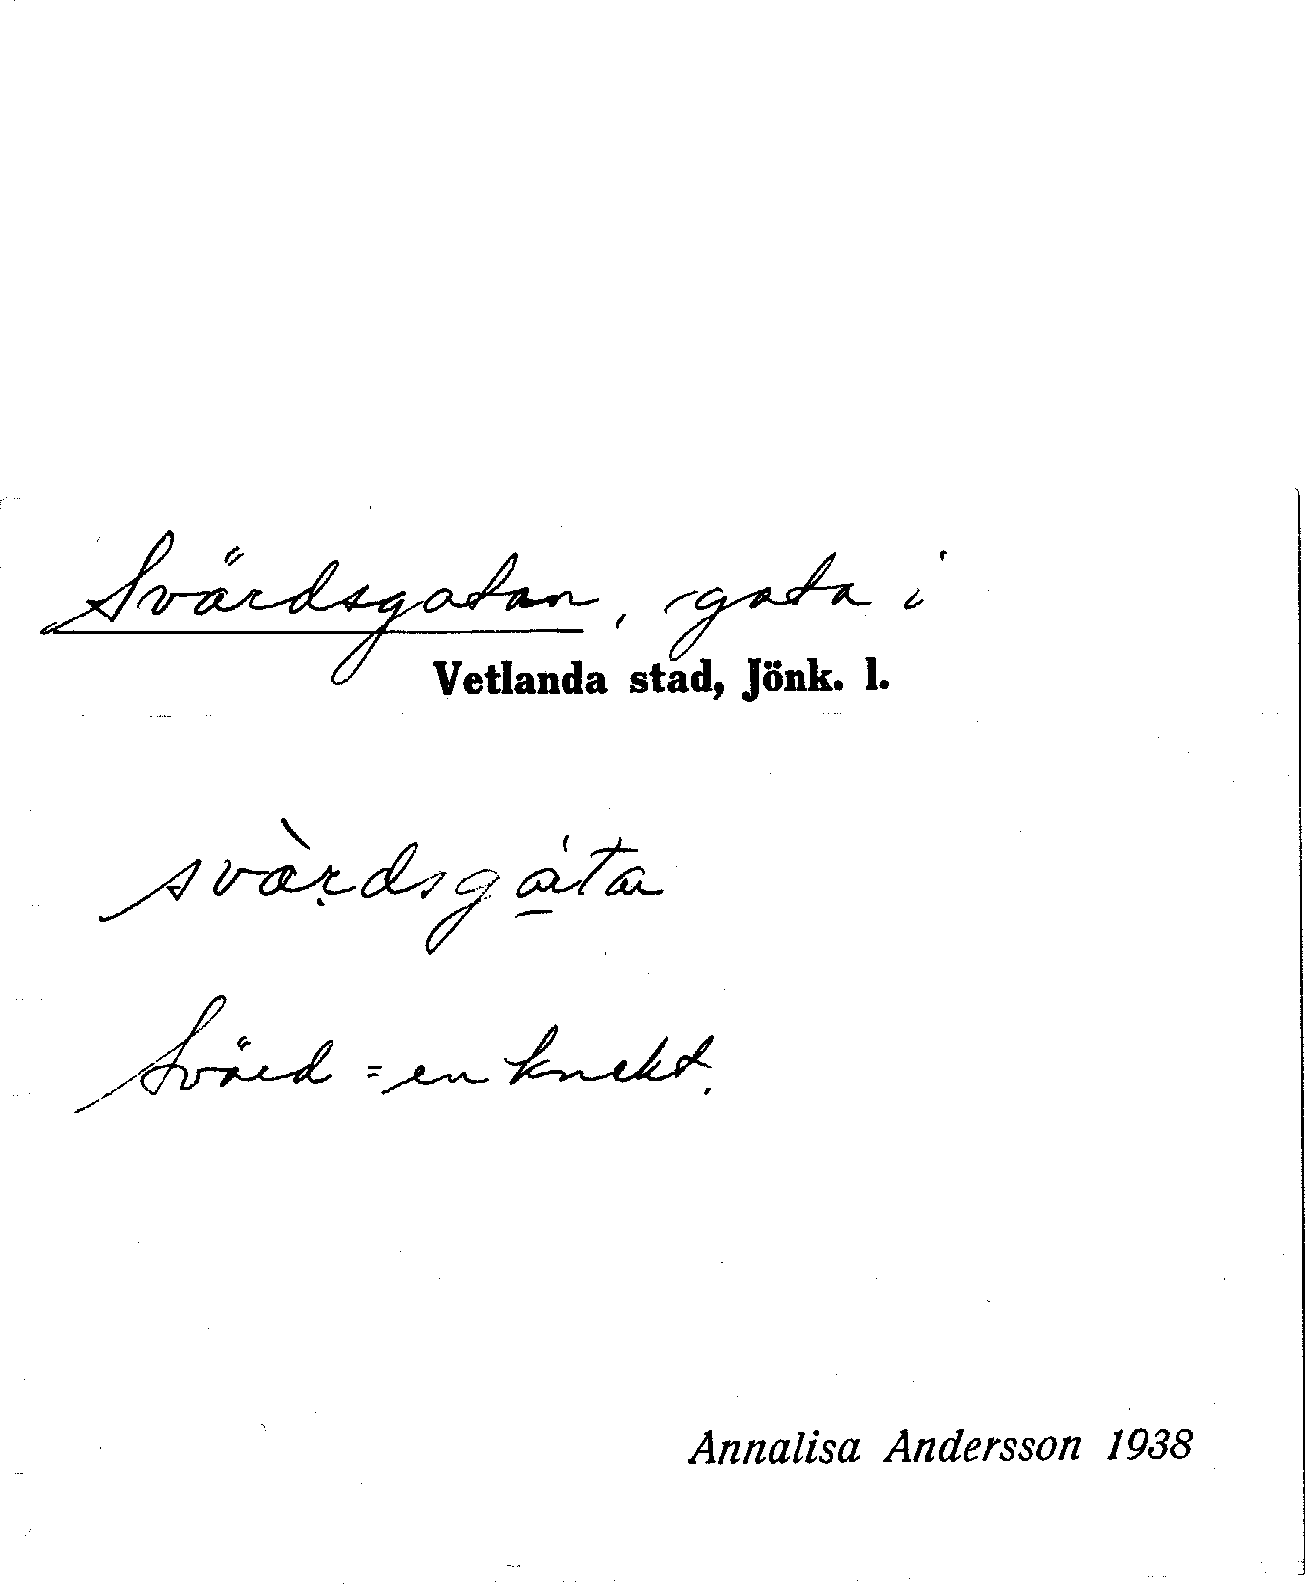 Svärdsgatan, gata i
Vetlanda stad, Jönk. l.
svàṛdsga̱´ta
Svärd = en knekt.
Annalisa Andersson 1938